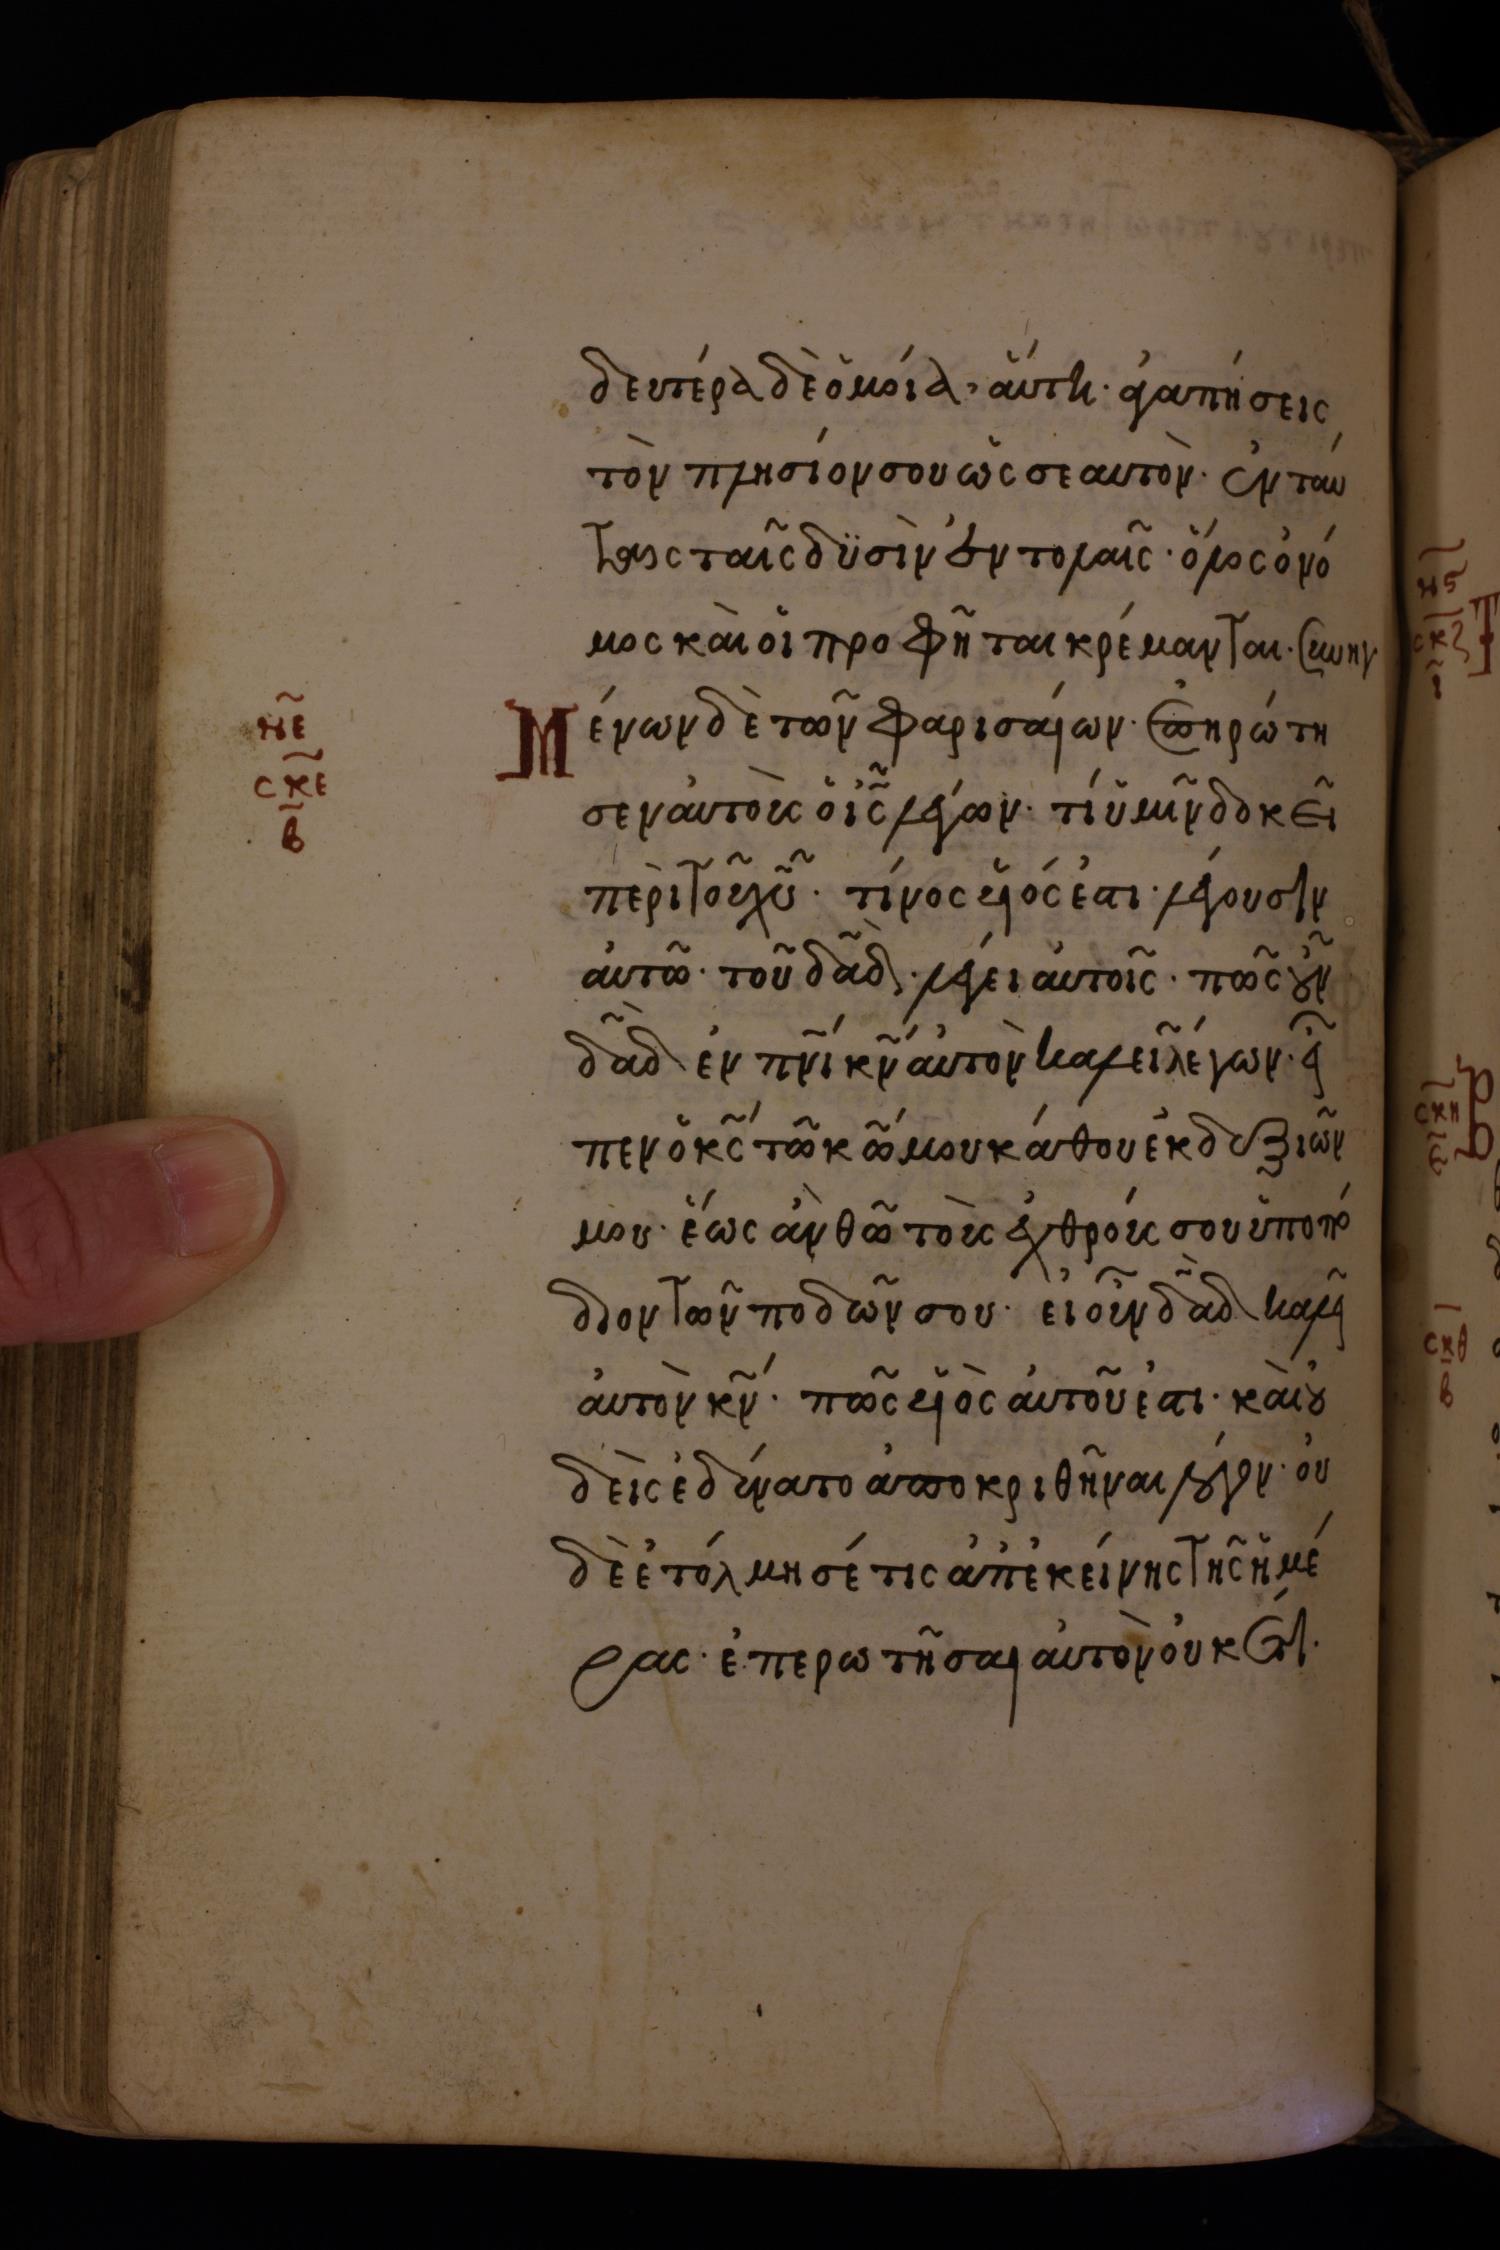 δευτέρα δὲ ὁμοία, ἅυτη· ἀγαπήσεις
τὸν πλησίον σου ὡς σεαυτὸν· ἐν ταύ
ταις ταῖς δϋσὶν ἐντολαῖς· ὅλος ὁ νό
μος κὰι ὁι προφῆται κρέμανται· συνηγ
Μένων δὲ τῶν φαρισαίων· ἐπηρώτη
σεν ἀυτοὺς ὁ ις̃ λέγων· τί ὑμῖν δοκεῖ
νε̃
σκε
β
περὶ τοῦ χῦ· τίνος ὑιός ἐστι· λέγουσιν
ἀυτῶ· τοῦ δα̃δ· λέγει ἀυτοῖς· πῶς οὖν
δα̃δ ἐν πν̃ι κν̃ ἀυτὸν καλεῖ λέγων· εἶ
πεν ὁ κς̃ τῶ κω̃ μου κάθου ἐκ δεξιῶν
μου· ἕως ἀν θῶ τοὺς ἐχθρούς σου ὑποπό
διον τῶν ποδῶν σου· ἐι οὖν δα̃δ καλεῖ
ἀυτὸν κν̃· πῶς ὑιὸς ἀυτοῦ ἐστι· κὰι ου
δεὶς ἐδύνατο ἀποκριθῆναι λόγον· ὀυ
δὲ ἐτόλμησέ τις ἀπ ἐκείνης τῆς ἡμέ
ρας· ἐπερωτῆσαι ἀυτὸν ὀυκέτι·
νϛ
σκζ
ι
σκη
σκθ
β